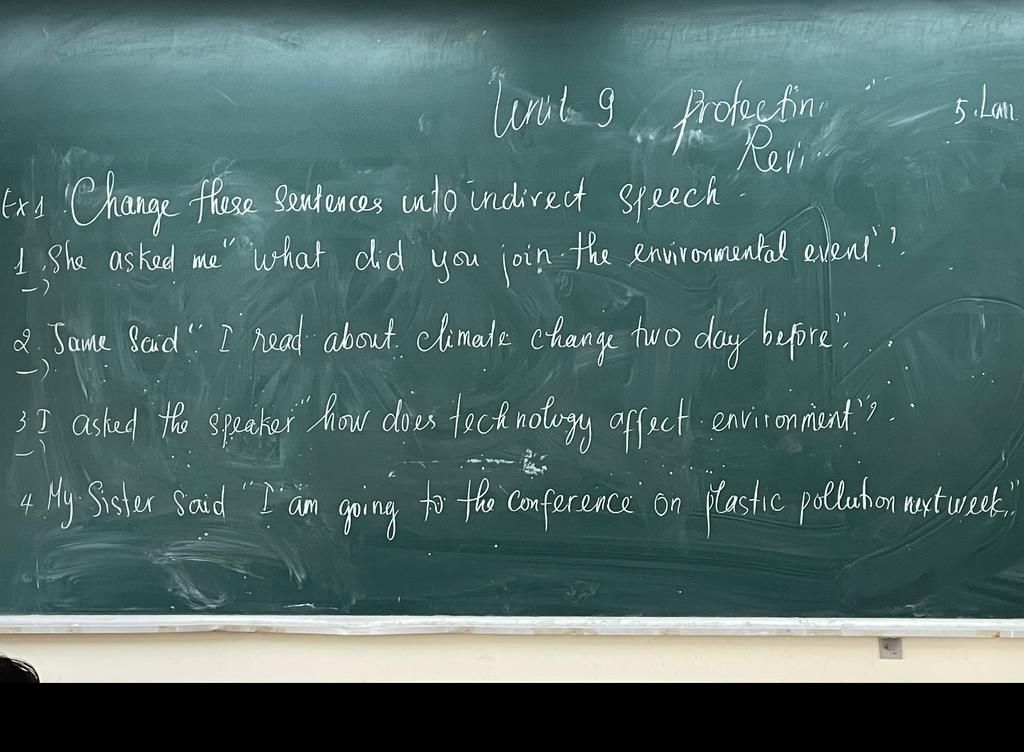 Unit 9 Protectin
Revi
5.Lan
Ex1 Change these sentences into indirect speech.
1. She asked me "what did you join the environmental event"?
→
2. Jame said "I read about climate change two day before".
→
3 I asked the speaker "how does technology affect environment"?
→
4. My Sister said "I am going to the conference on plastic pollution next week."